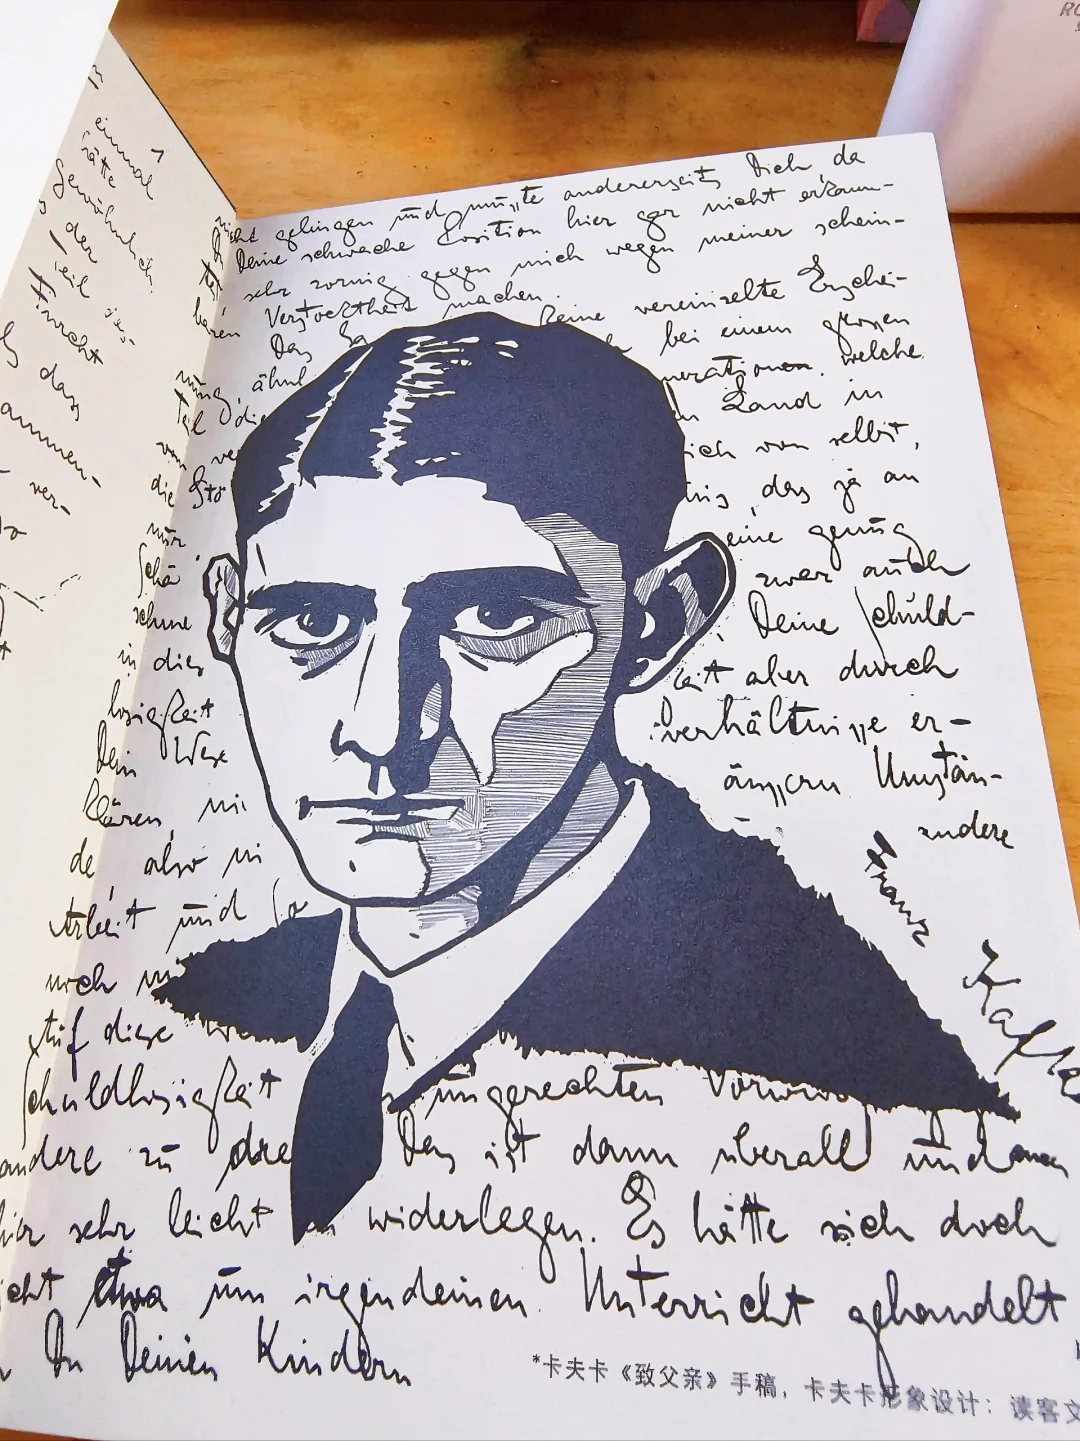 einmal
hätte
Gewöhnlich
der
teil
daß
ammen-
ver-
nicht gelingen und müsste andererseits Dich, da
Du Deine schwache Position hier gar nicht erkann-
test, sehr zornig gegen mich wegen meiner schein-
baren Verstocktheit machen.
Das keine vereinzelte Erschei-
nung, ähnl bei einem grossen
Teil die nerationen welche
vom ve Land in
die Stä sich von selbst,
nur das ja an
Schä eine genug
schme zwar auch
in dies Deine Schuld-
losigkeit keit aber durch
Dein Wese verhältnisse er-
klären, äussern Umstän-
de, also ni andere
Arbeit und
noch
Auf diese
Schuldlosigkeit ungerechten Vorwurf
andere zu dre Das ist dann überall und
hier sehr leicht zu widerlegen. Es hätte sich doch
nicht etwa um irgendeinen Unterricht gehandelt
Du Deinen Kindern
Franz Kafka
*卡夫卡《致父亲》手稿，卡夫卡形象设计：读客文